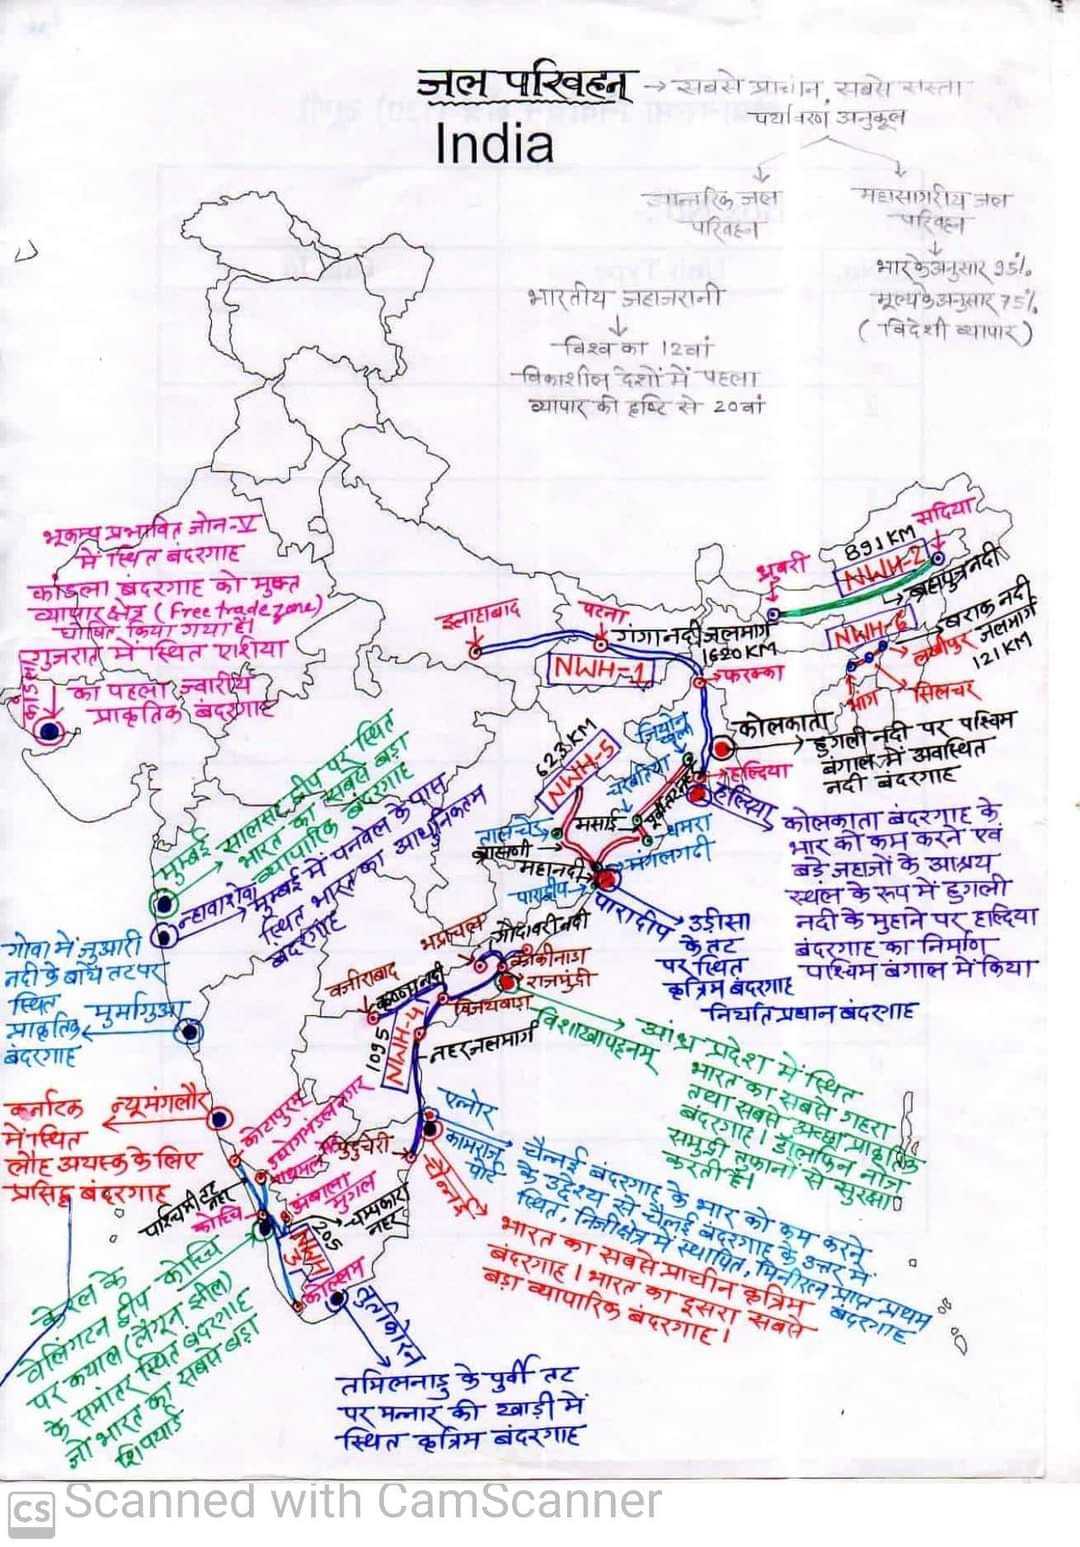 जल परिवहन → सबसे प्राचीन, सबसे सस्ता
पर्यावरण अनुकूल
India
आन्तरिक जल
परिवहन
महासागरीय जल
परिवहन
भार के अनुसार 95%
मूल्य के अनुसार 75%
(विदेशी व्यापार)
भारतीय जहाजरानी
विश्व का 12वां
विकाशील देशों में पहला
व्यापार की दृष्टि से 20वां
भूकम्प प्रभावित जोन-V
में स्थित बंदरगाह
कांडला बंदरगाह को मुक्त
व्यापार क्षेत्र (Free trade zone)
घोषित किया गया है।
गुजरात में स्थित एशिया
का पहला ज्वारीय
प्राकृतिक बंदरगाह
कांडला
सदिया
891 KM
NWH-2
ब्रह्मपुत्र नदी
धुबरी
NWH-6
बराक नदी
जलमार्ग
121 KM
लखीपुर
सिलचर
भांग
इलाहाबाद
पटना
गंगा नदी जलमार्ग
1620 KM
NWH-1
फरक्का
कोलकाता
हुगली नदी पर पश्चिम
बंगाल में अवस्थित
नदी बंदरगाह
हल्दिया
हल्दिया
कोलकाता बंदरगाह के
भार को कम करने एवं
बड़े जहाजों के आश्रय
स्थल के रूप में हुगली
नदी के मुहाने पर हल्दिया
बंदरगाह का निर्माण
पश्चिम बंगाल में किया
623 KM
NWH-5
चरबतिया
मसाई
धमरा
तालचेर
ब्राह्मणी
महानदी
मंगलगदी
पारादीप
पारादीप
उड़ीसा
के तट
पर स्थित
कृत्रिम बंदरगाह
निर्यात प्रधान बंदरगाह
मुम्बई
सालसट द्वीप पर स्थित
भारत का सबसे बड़ा
व्यापारिक बंदरगाह
न्हावाशेवा
मुम्बई में पनवेल के पास
स्थित भारत का आधुनिकतम
बंदरगाह
गोवा में जुआरी
नदी के बांये तट पर
स्थित
प्राकृतिक
बंदरगाह
मुर्मागुआ
भद्राचलम
गोदावरी नदी
काकीनाडा
राजमुंदरी
वजीराबाद
कृष्णा नदी
विजयवाडा
1095
NWH-4
नहर जलमार्ग
विशाखापट्टनम्
आंध्र प्रदेश में स्थित
भारत का सबसे गहरा
तथा सबसे अच्छा प्राकृतिक
बंदरगाह। डॉल्फिन नोज
समुद्री तूफानों से सुरक्षा
करती है।
कर्नाटक
में स्थित
लौह अयस्क के लिए
प्रसिद्ध बंदरगाह
न्यू मंगलौर
कोटापुरम
उद्योगमंडल नगर
पुडुचेरी
पश्चिमी तट
नहर
कोच्चि
205
चम्पकारा
नहर
NWH
3
कोल्लम
एन्नोर
कामराज
पोर्ट
चैन्नई बंदरगाह के भार को कम करने
के उद्देश्य से चैन्नई बंदरगाह के उत्तर में
स्थित, निजीक्षेत्र में स्थापित, मिनीरत्न प्राप्त प्रथम
बंदरगाह
चैन्नई
भारत का सबसे प्राचीन कृत्रिम
बंदरगाह। भारत का दूसरा सबसे
बड़ा व्यापारिक बंदरगाह।
केरल के
वेलिंगटन द्वीप कोच्चि
पर कयाल (लैगून झील)
के समांतर स्थित बंदरगाह
जो भारत का सबसे बड़ा
शिपयार्ड
तूतीकोरिन
तमिलनाडु के पुर्वी तट
पर मन्नार की खाड़ी में
स्थित कृत्रिम बंदरगाह
CS Scanned with CamScanner